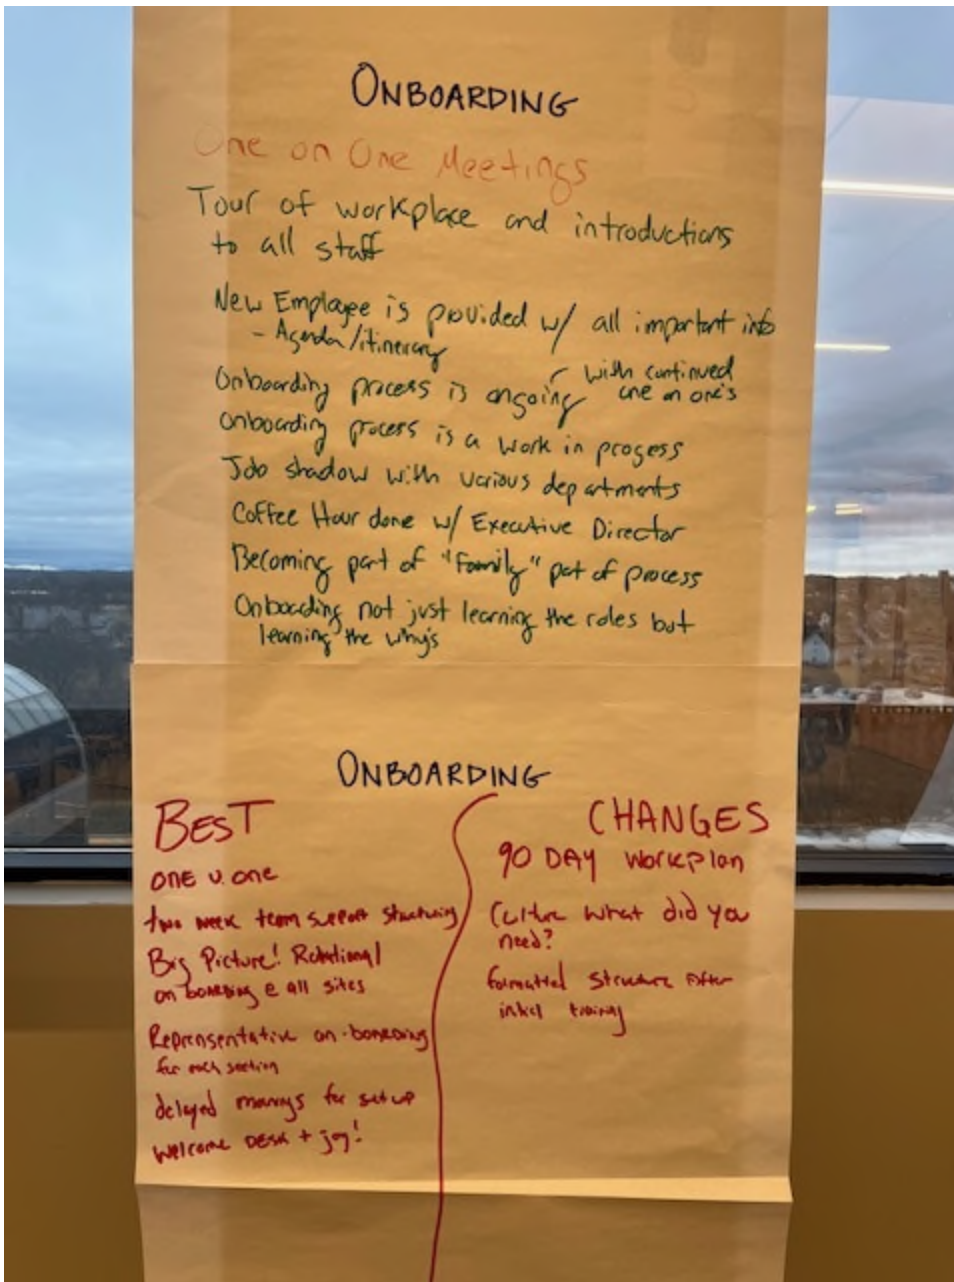 ONBOARDING
One on One Meetings
Tour of workplace and introductions
to all staff
New Employee is provided w/ all important info
- Agenda/itinerary
Onboarding process is ongoing - with continued
one on one's
Onboarding process is a work in progess
Job shadow with various departments
Coffee Hour done w/ Executive Director
Becoming part of "family" part of process
Onboarding not just learning the roles but
learning the why's
ONBOARDING
BEST
ONE v. one
two week team support structuring
Big Picture! Rotational
on boarding @ all sites
Representative on-boarding
for each section
delayed for set up
Welcome DESK + joy!
CHANGES
90 DAY Workplan
Culture What did you
need?
formatted structure After
initial training